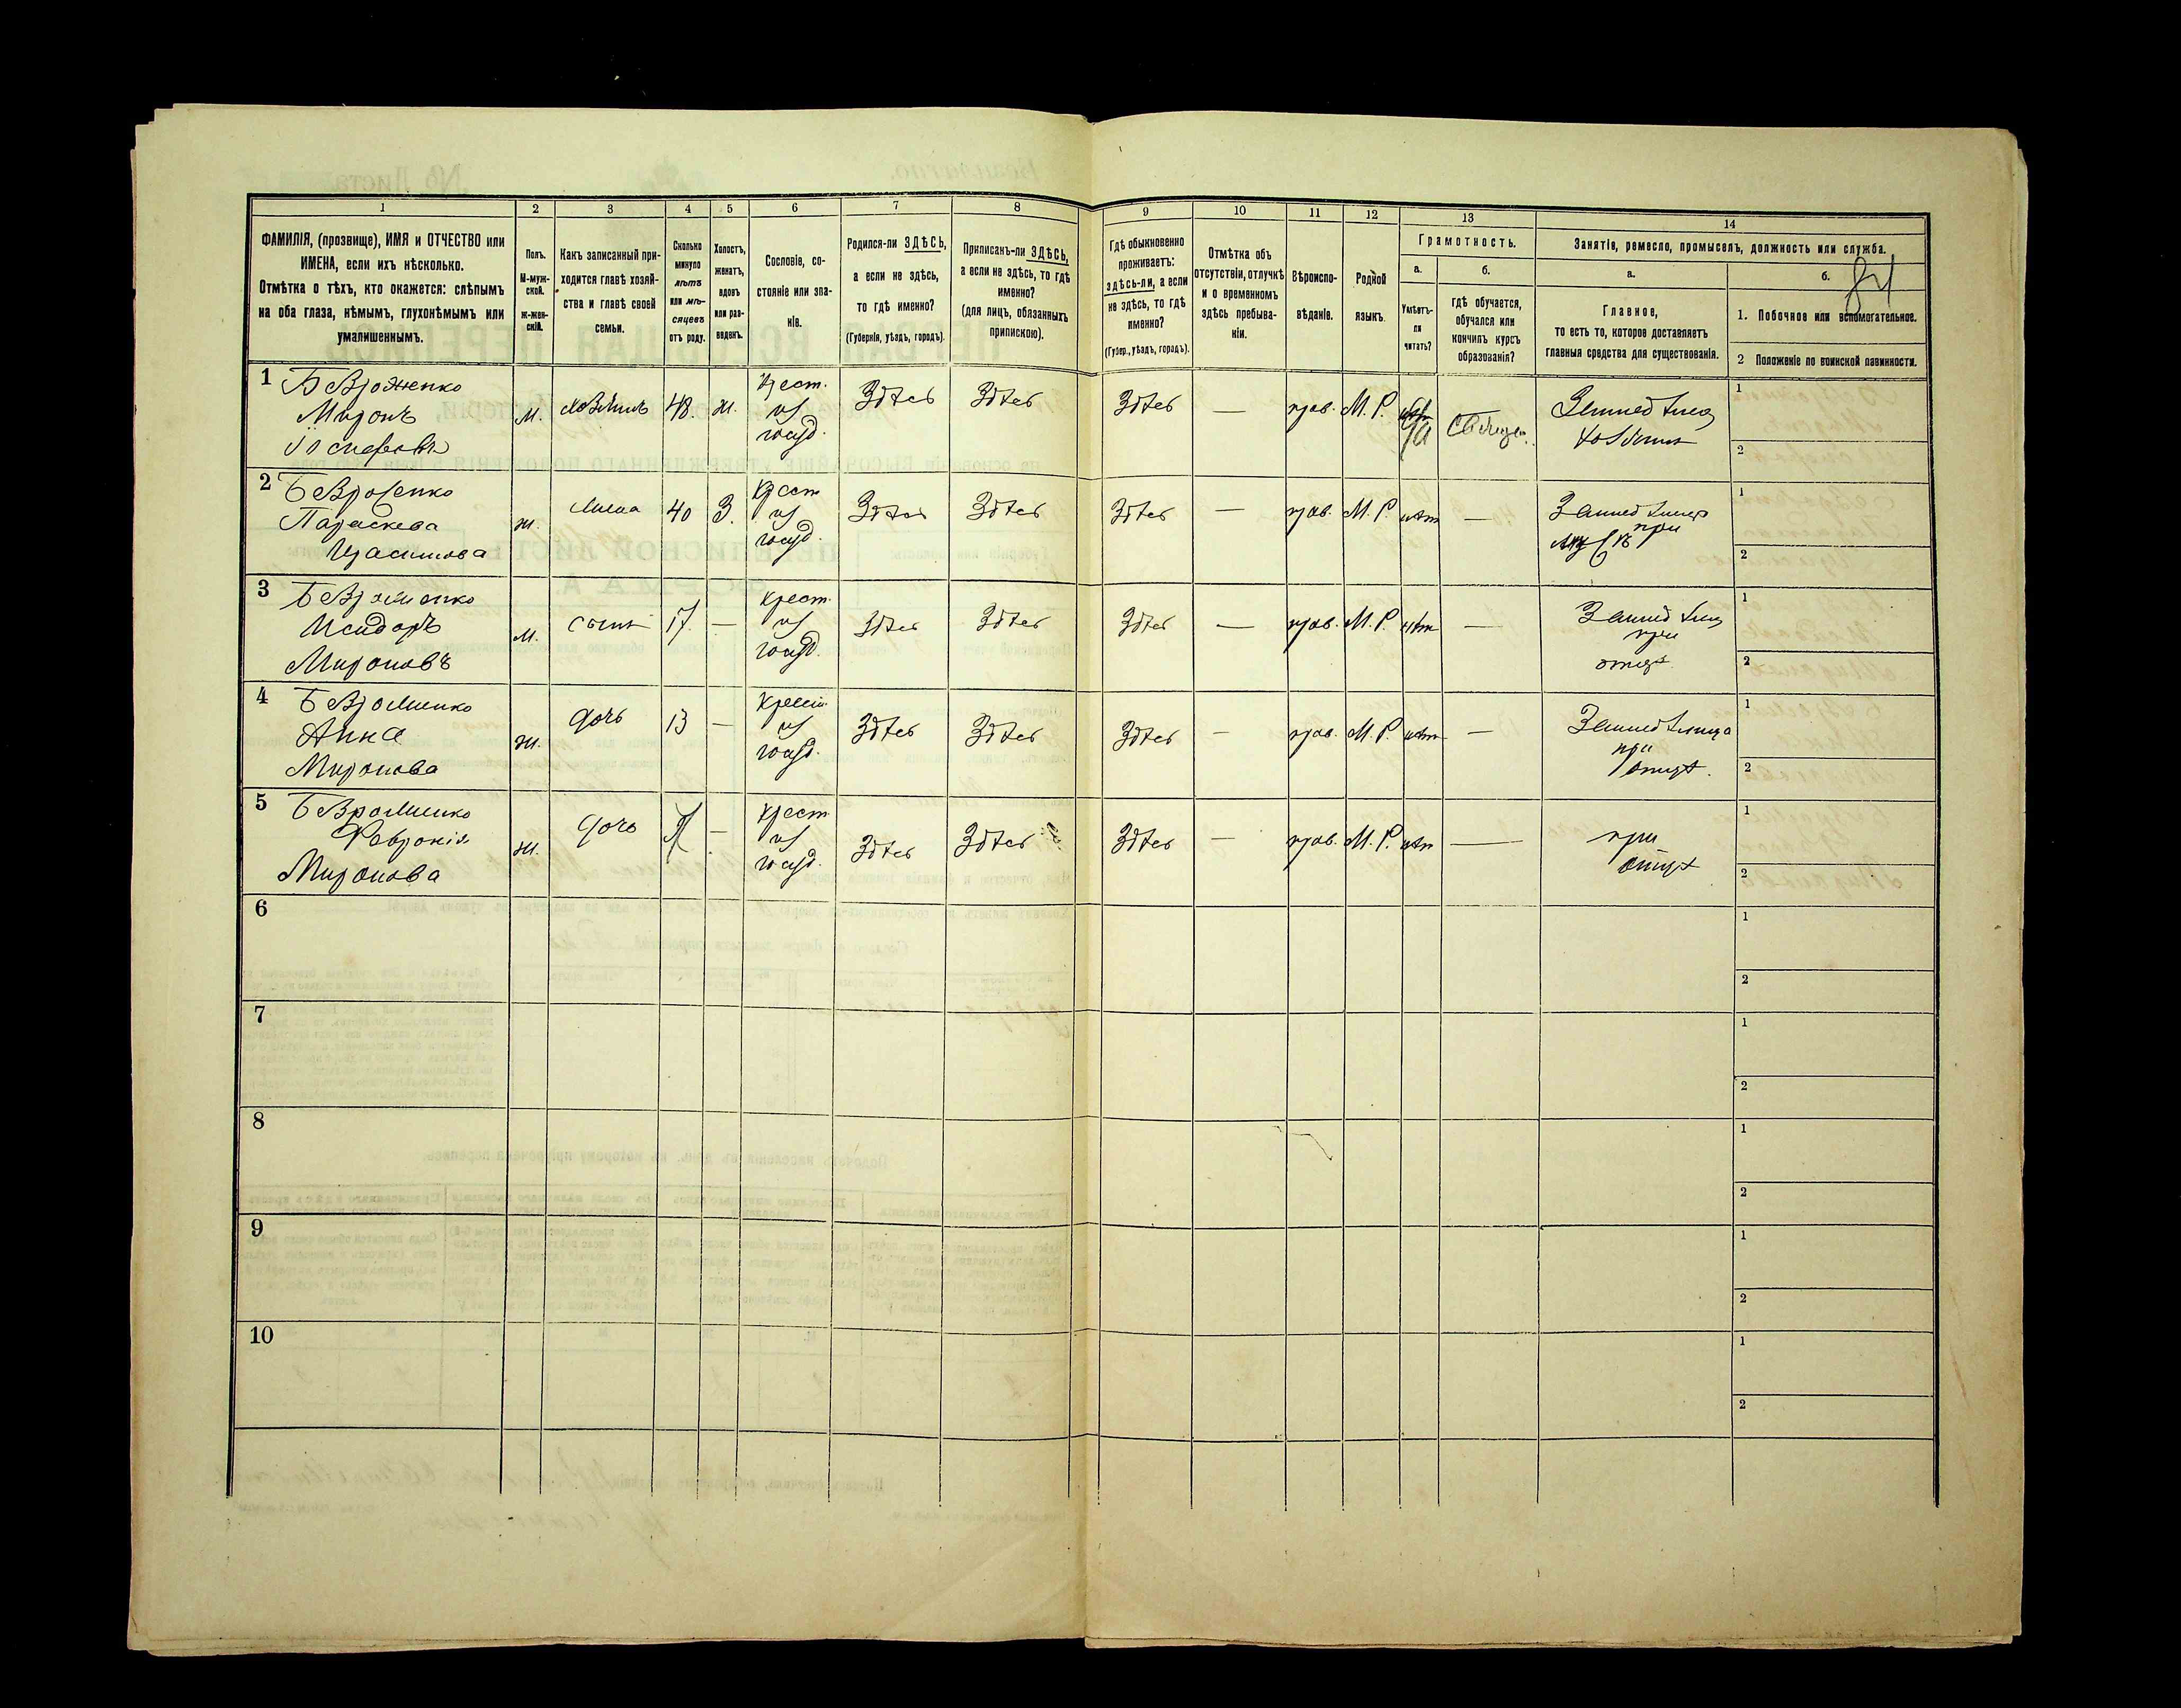 1 2 3 4 5 6 7 8 9 10 11 12 13 14
ФАМИЛІЯ, (прозвище), ИМЯ и ОТЧЕСТВО или
ИМЕНА, если ихъ нѣсколько.
Отмѣтка о тѣхъ, кто окажется: слѣпымъ
на оба глаза, нѣмымъ, глухонѣмымъ или
умалишеннымъ.
Полъ.
М-муж-
ской.
ж-жен-
скій.
Какъ записанный при-
ходится главѣ хозяй-
ства и главѣ своей
семьи.
Сколько
минуло
лѣтъ
или мѣ-
сяцевъ
отъ роду.
Холостъ,
женатъ,
вдовъ
или раз-
веденъ.
Сословіе, со-
стояніе или зва-
ніе.
Родился-ли ЗДѢСЬ,
а если не здѣсь,
то гдѣ именно?
(Губернія, уѣздъ, городъ).
Приписанъ-ли ЗДѢСЬ,
а если не здѣсь, то гдѣ
именно?
(для лицъ, обязанныхъ
припискою).
Гдѣ обыкновенно
проживаетъ:
здѣсь-ли, а если
не здѣсь, то гдѣ
именно?
(Губер., уѣздъ, городъ).
Отмѣтка объ
отсутствіи, отлучкѣ
и о временномъ
здѣсь пребыва-
ніи.
Вѣроиспо-
вѣданіе.
Родной
языкъ.
Грамотность.
а.
Умѣетъ-
ли
читать?
б.
Гдѣ обучается,
обучался или
кончилъ курсъ
образованія?
Занятіе, ремесло, промыселъ, должность или служба.
а.
Главное,
то есть то, которое доставляетъ
главныя средства для существованія.
б.
1. Побочное или вспомогательное.
2 Положеніе по воинской повинности.
1
Миронъ
Іосифовъ
М. 48. ж.
Крест.
из
госуд.
Здѣсь Здѣсь Здѣсь — прав. М. Р. да
1
2
2
Параскева
ж. жена 40 З.
Крест
из
госуд.
Здѣсь Здѣсь Здѣсь — прав. М. Р. нѣт —
при
1
2
3
Исидоръ
Мироновъ
М. сынъ 17 —
Крест.
из
госуд.
Здѣсь Здѣсь Здѣсь — прав. М. Р. нѣт —
при
отцѣ
1
2
4
Анна
Миронова
ж. дочь 13 —
Крест.
из
госуд.
Здѣсь Здѣсь Здѣсь — прав. М. Р. нѣт —
при
отцѣ.
1
2
5
Февронія
Миронова
ж. дочь —
Крест
из
госуд.
Здѣсь Здѣсь Здѣсь — прав. М. Р. нѣт —
при
отцѣ
1
2
6
1
2
7
1
2
8
1
2
9
1
2
10
1
2